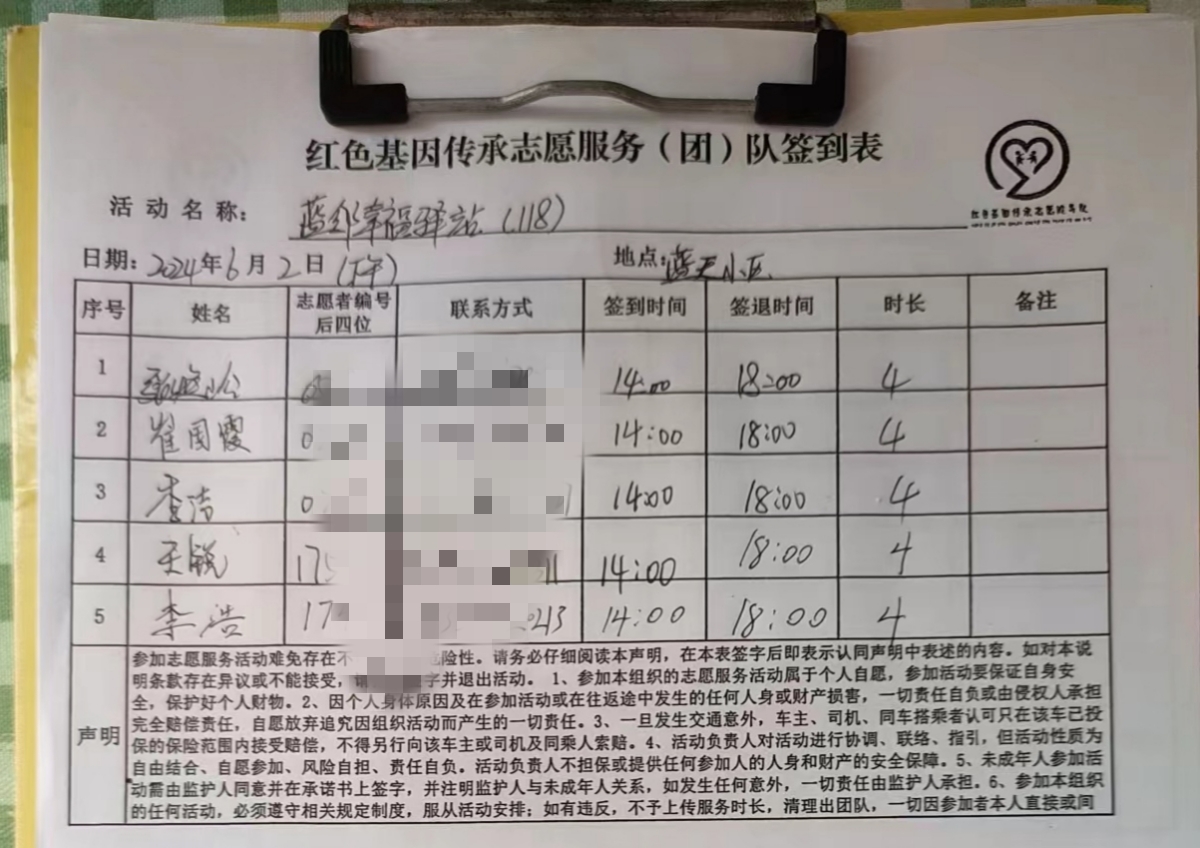 红色基因传承志愿服务（团）队签到表
活动名称： 幸福驿站（118）
日期：2024年6月2日（下午） 地点：蓝天小区
序号 姓名 志愿者编号后四位 联系方式 签到时间 签退时间 时长 备注
1 14:00 18:00 4
2 崔国霞 0 14:00 18:00 4
3 李洁 0 14:00 18:00 4
4 王锐 175 11 14:00 18:00 4
5 李浩 17 043 14:00 18:00 4
声明
参加志愿服务活动难免存在不 险性。请务必仔细阅读本声明，在本表签字后即表示认同声明中表述的内容。如对本说
明条款存在异议或不能接受，请 字并退出活动。 1、参加本组织的志愿服务活动属于个人自愿，参加活动要保证自身安
全，保护好个人财物。2、因个人身体原因及在参加活动或在往返途中发生的任何人身或财产损害，一切责任自负或由侵权人承担
完全赔偿责任，自愿放弃追究因组织活动而产生的一切责任。3、一旦发生交通意外，车主、司机、同车搭乘者认可只在该车已投
保的保险范围内接受赔偿，不得另行向该车主或司机及同乘人索赔。4、活动负责人对活动进行协调、联络、指引，但活动性质为
自由结合、自愿参加、风险自担、责任自负。活动负责人不担保或提供任何参加人的人身和财产的安全保障。5、未成年人参加活
动需由监护人同意并在承诺书上签字，并注明监护人与未成年人关系，如发生任何意外，一切责任由监护人承担。6、参加本组织
的任何活动，必须遵守相关规定制度，服从活动安排；如有违反，不予上传服务时长，清理出团队，一切因参加者本人直接或间